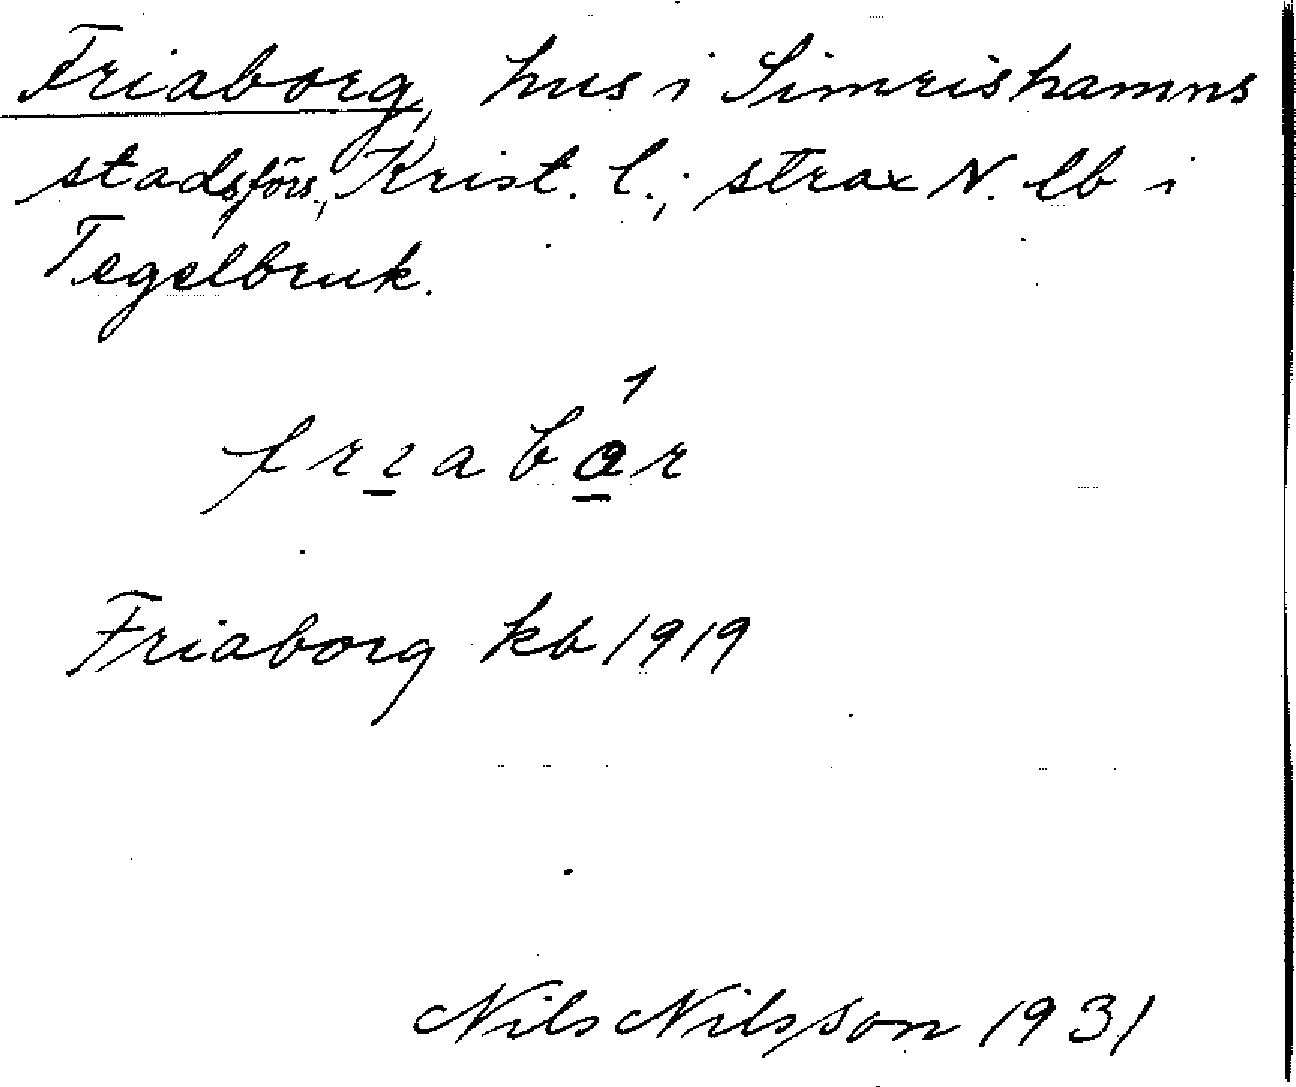 Friaborg, hus i Simrishamns
stadsförs., Krist. l.; strax N. lb i
Tegelbruk.
frıabǻr
Friaborg kb 1919
Nils Nilsson 1931